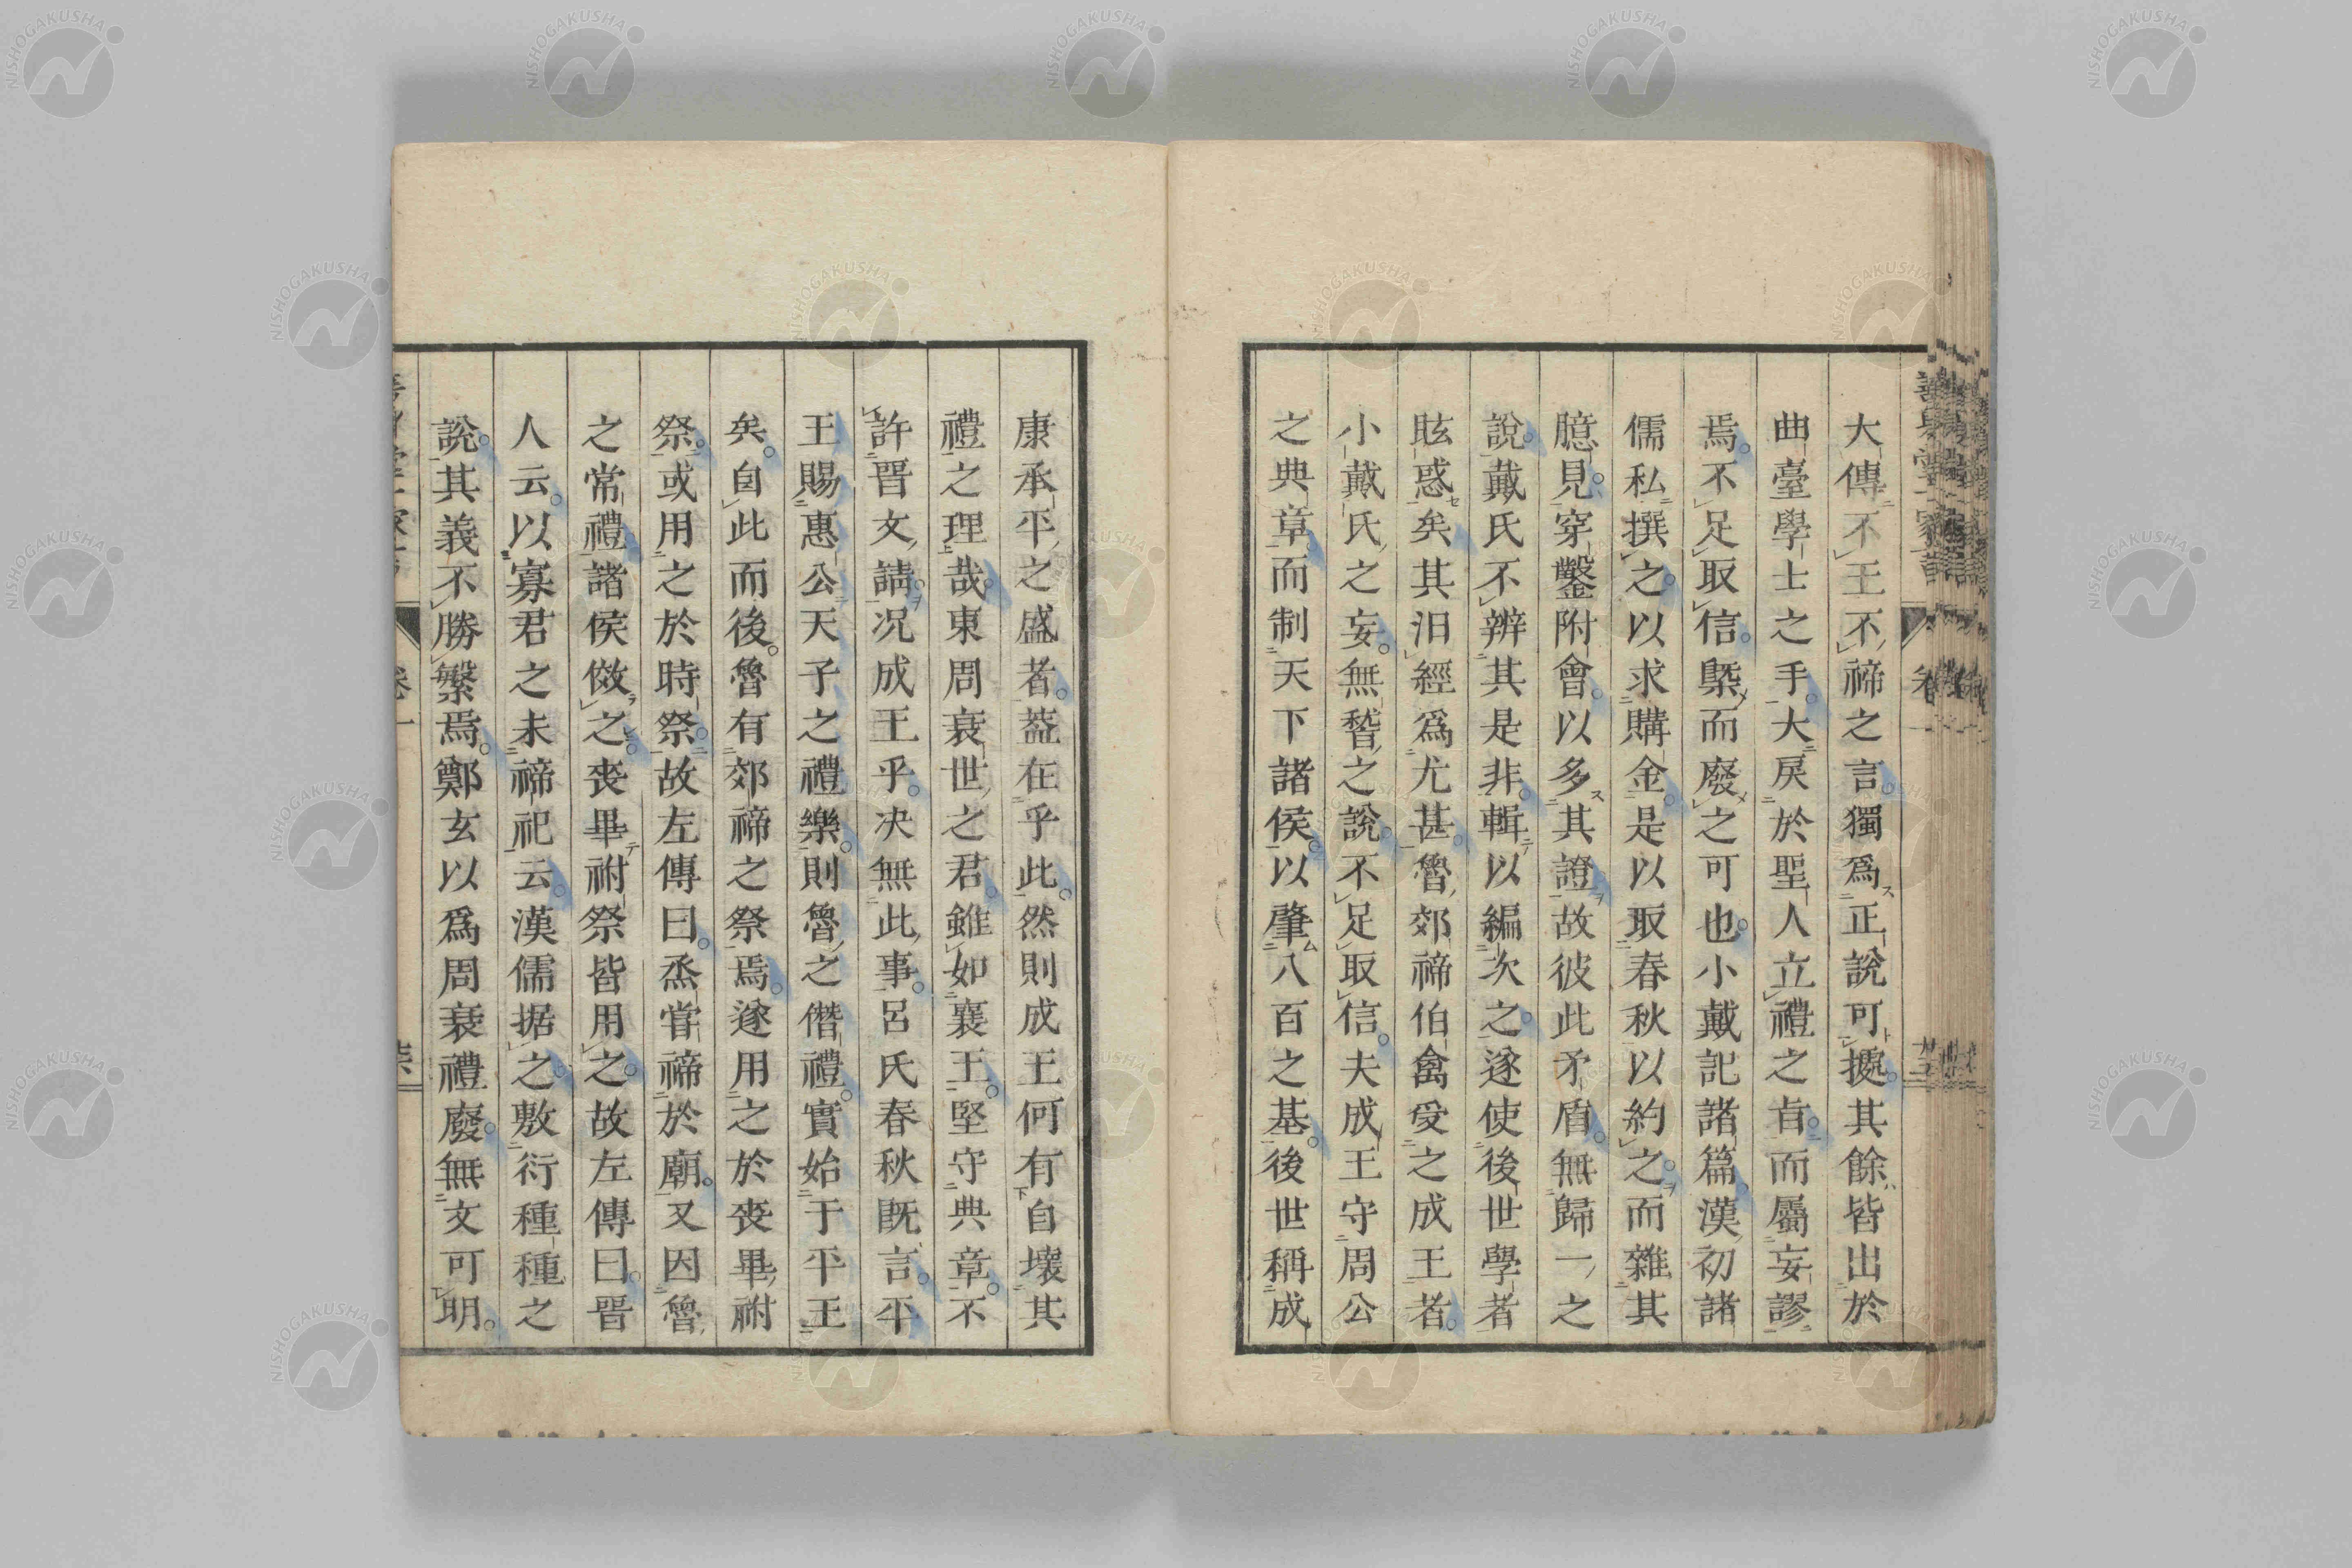 大傳不王不禘之言獨爲正說可據其餘皆出於
曲臺學士之手大戾於聖人立禮之旨而屬妄謬
焉不足取信槩而廢之可也小戴記諸篇漢初諸
儒私撰之以求購金是以取春秋以約之而雜其
臆見穿鑿附會以多其證故彼此矛盾無歸一之
說戴氏不辨其是非輯以編次之遂使後世學者
眩惑矣其汨經爲尤甚魯郊禘伯禽受之成王者
小戴氏之妄無稽之說不足取信夫成王守周公
之典章而制天下諸侯以肇八百之基後世稱成
康承平之盛者葢在乎此然則成王何有自壞其
禮之理哉東周衰世之君雖如襄王堅守典章不
許晋文請况成王乎決無此事呂氏春秋既言平
王賜惠公天子之禮樂則魯之僭禮實始于平王
矣自此而後魯有郊禘之祭焉遂用之於喪畢祔
祭或用之於時祭故左傳曰烝甞禘於廟又因魯
之常禮諸侯倣之喪畢祔祭皆用之故左傳曰晋
人云以寡君之未禘祀云漢儒据之敷衍種種之
說其義不勝繁焉鄭玄以爲周衰禮廢無文可明
卷一
NISHOGAKUSHA